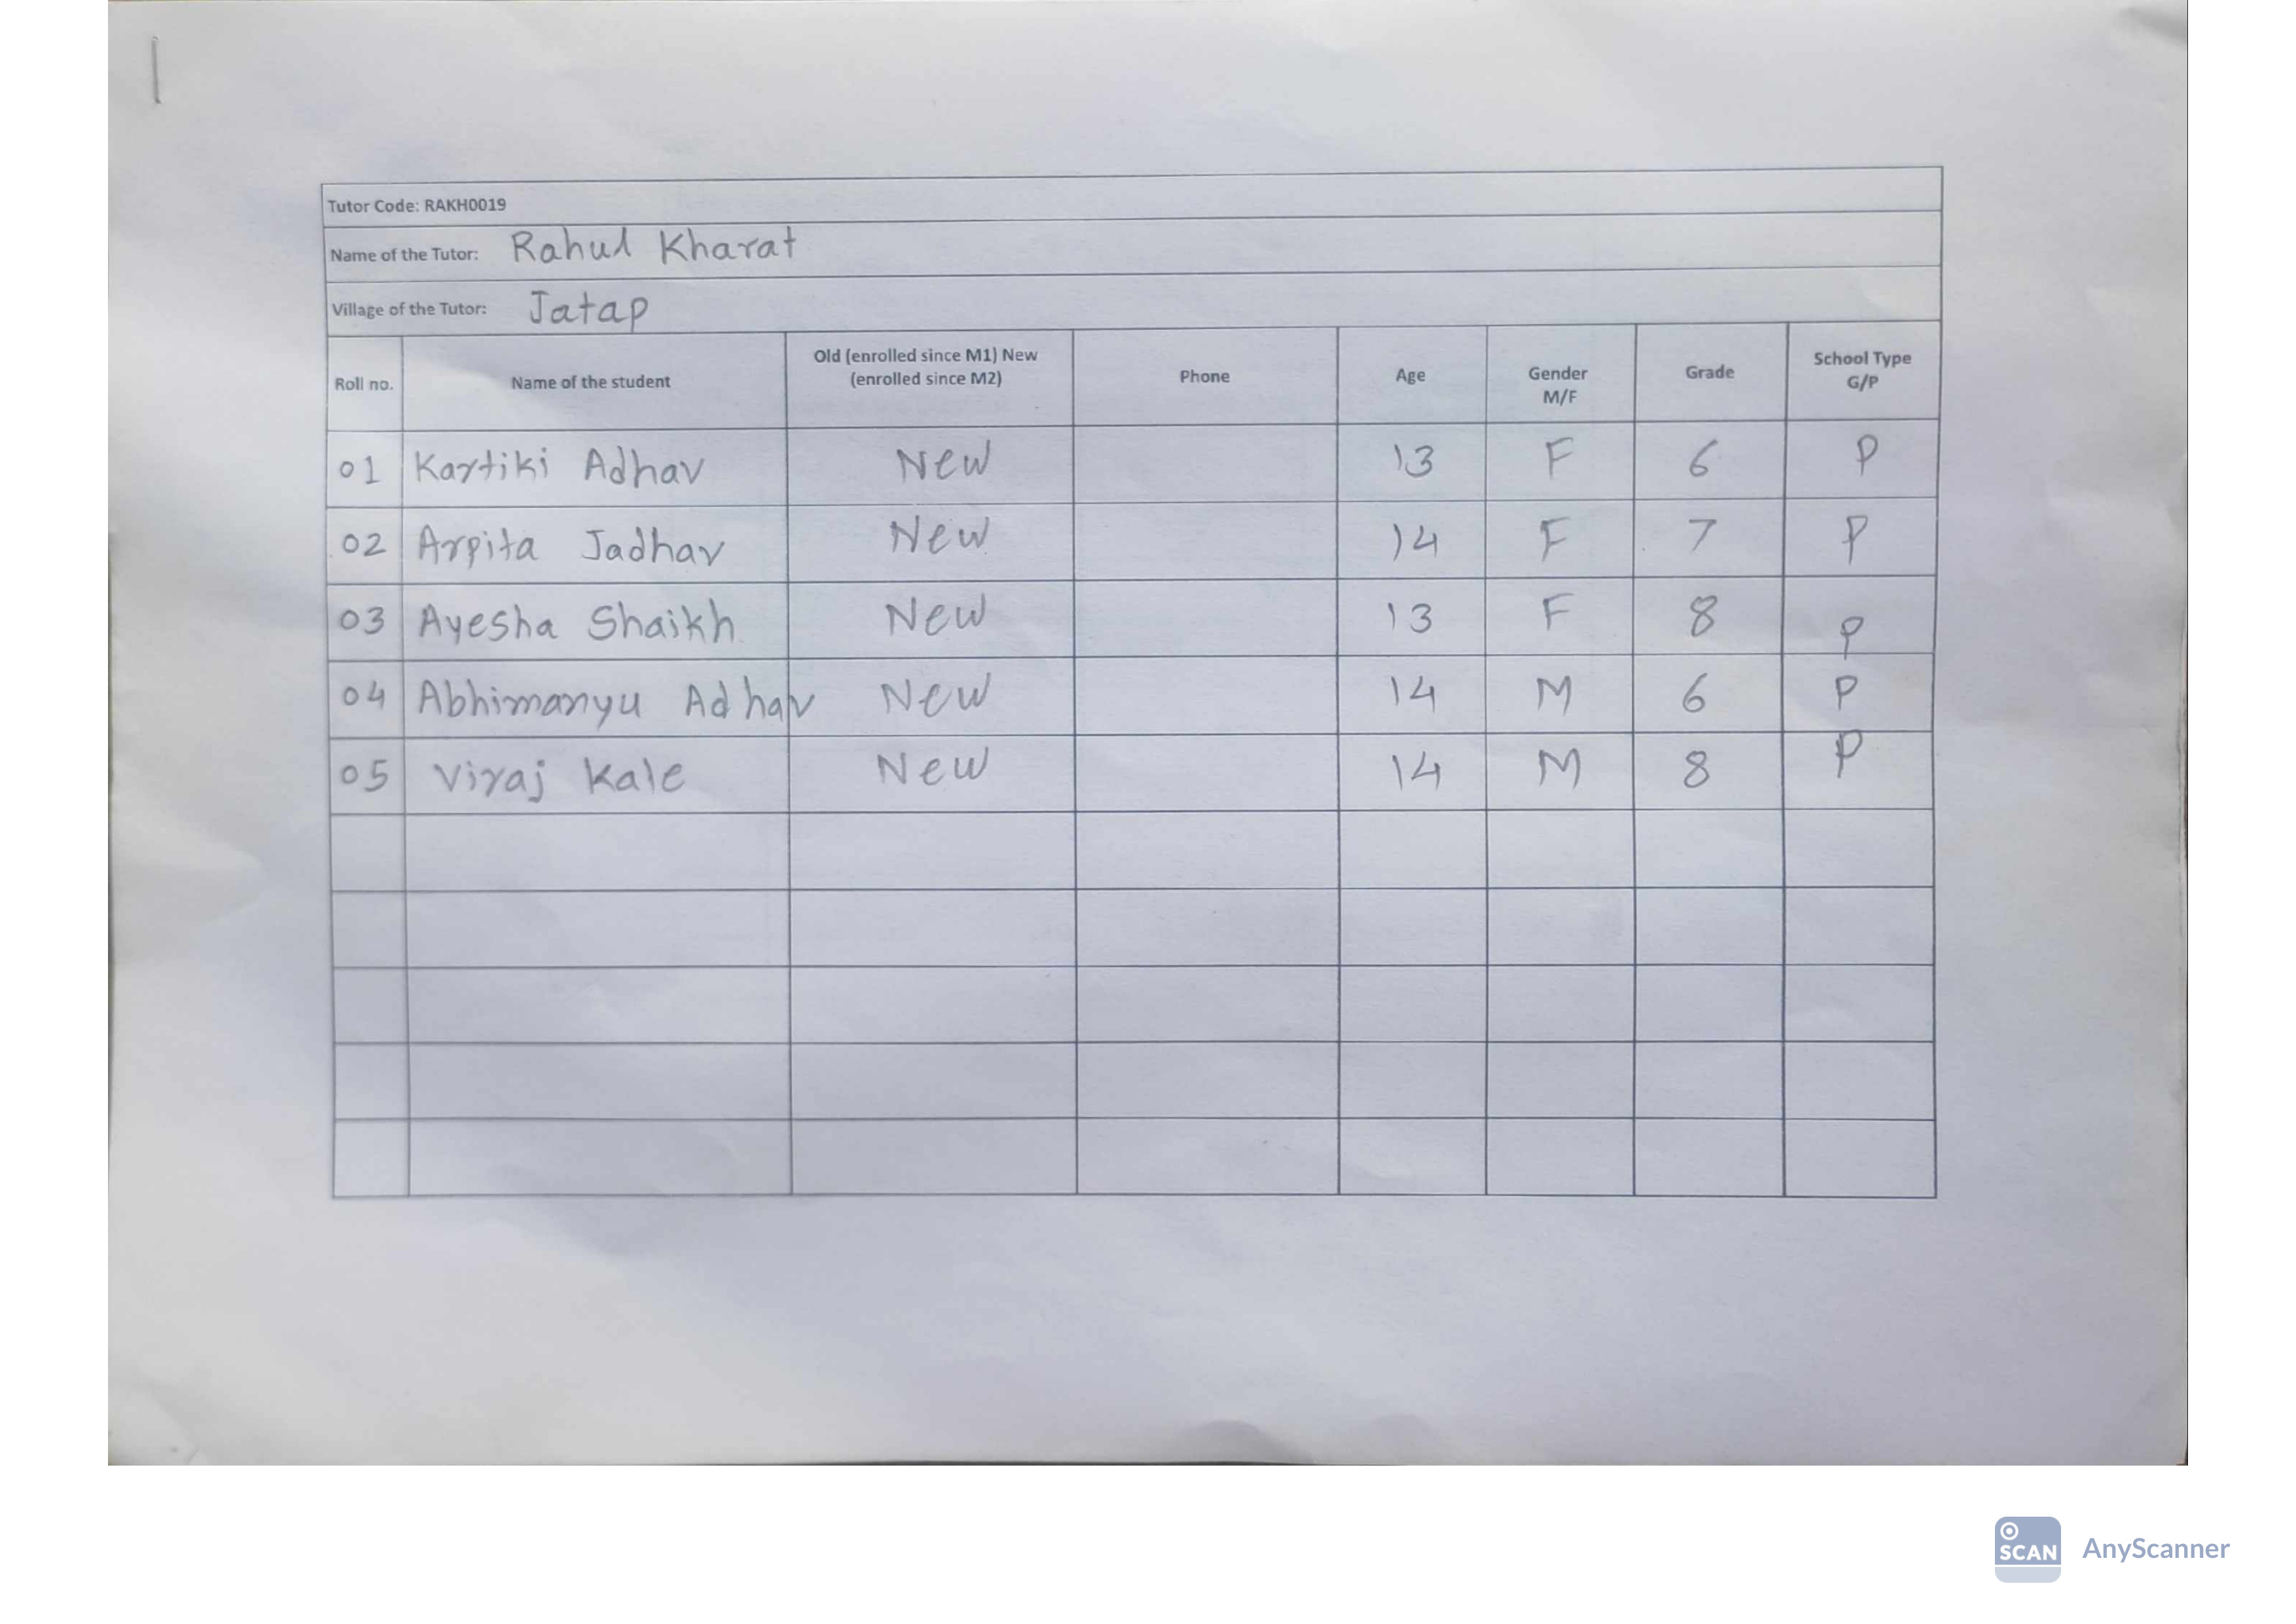 Tutor Code: RAKH0019
Name of the Tutor: Rahul Kharat
Village of the Tutor: Jatap
Roll no. Name of the student Old (enrolled since M1) New (enrolled since M2) Phone Age Gender M/F Grade School Type G/P
01 Kartiki Adhav New 13 F 6 P
02 Arpita Jadhav New 14 F 7 P
03 Ayesha Shaikh New 13 F 8 P
04 Abhimanyu Adhav New 14 M 6 P
05 Viraj Kale New 14 M 8 P
SCAN AnyScanner